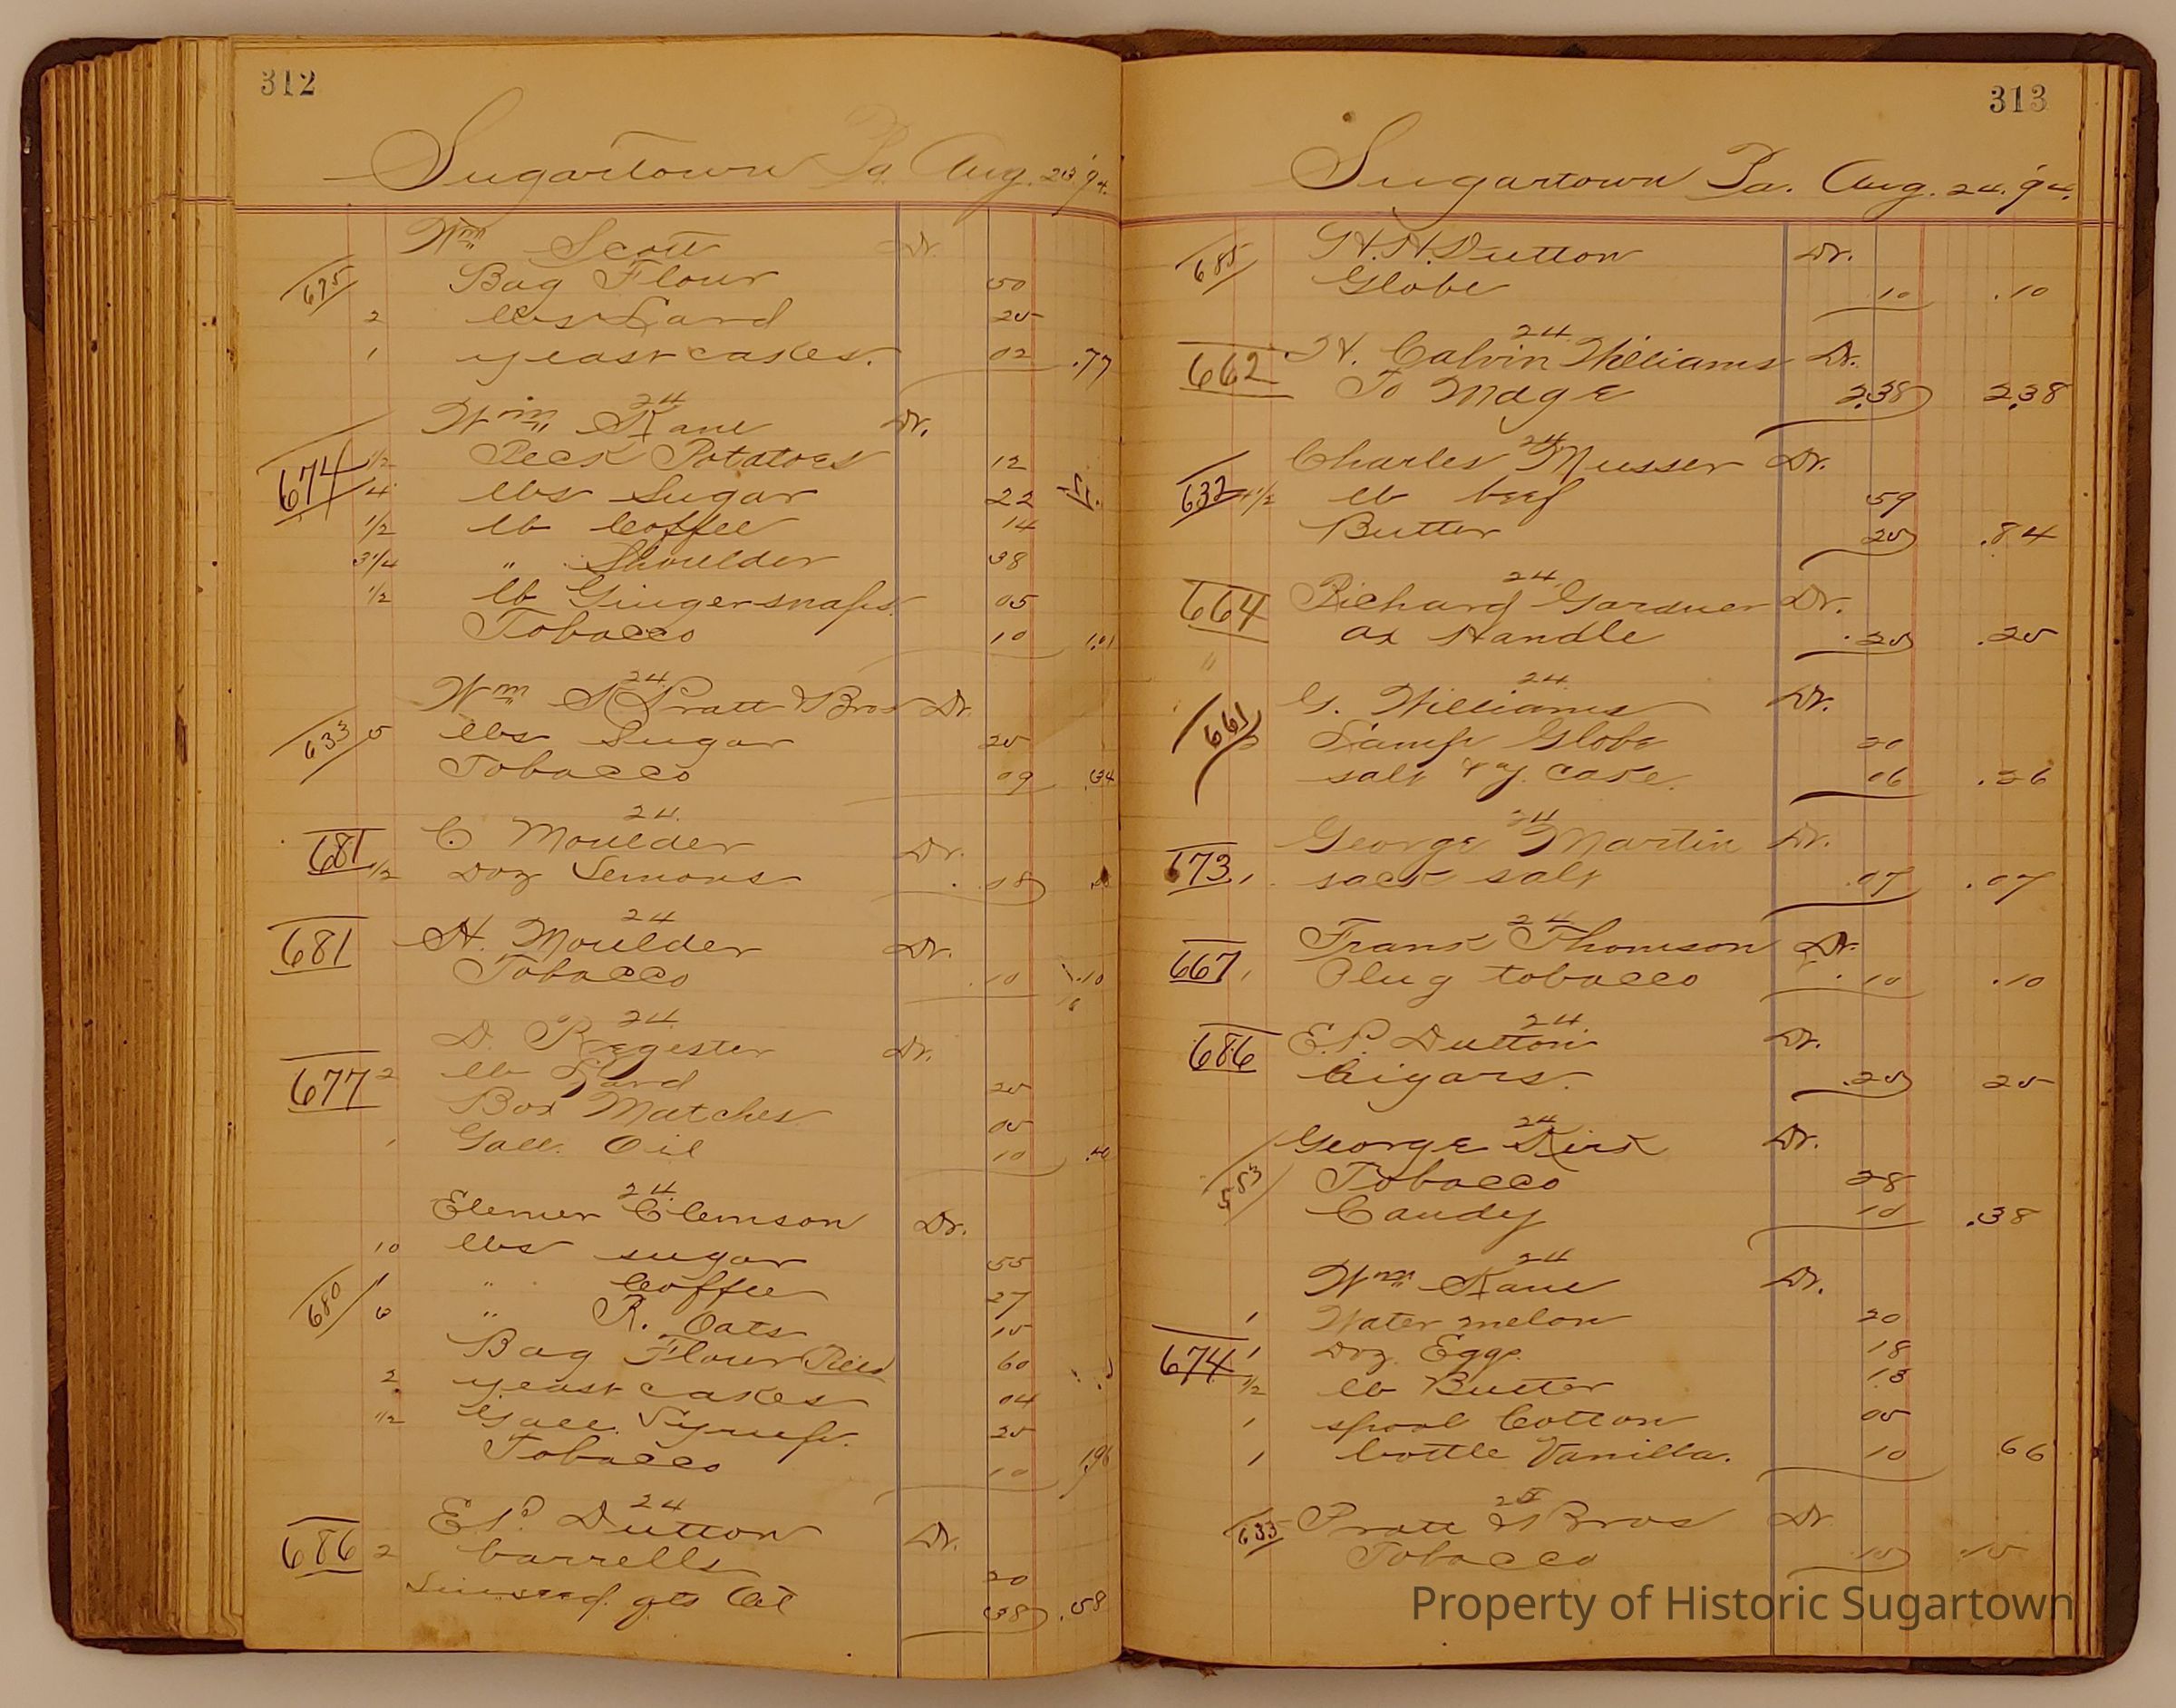 312
Sugartown Pa Aug. 23 '94.
Wm Scott Dr.
675 Bag Flour 50
2 lbs Lard 25
1 yeast cakes. 02 .77
24
Wm Kane Dr.
674 1/2 Peck Potatoes 12
4 lbs Sugar 22
1/2 lb Coffee 14
3 1/4 " Shoulder 38
1/2 lb Gingersnaps 05
Tobacco 10 1.01
24
Wm S Pratt & Bros Dr.
633 5 lbs Sugar 25
Tobacco 09 .34
24.
C Moulder Dr.
681 1/2 Doz Lemons .18
24
681 H. Moulder Dr.
Tobacco .10 .10
24.
D. Register Dr.
677 2 lb Lard 25
Box Matches 05
1 Gall. Oil 10 .40
24.
Elemer Clemson Dr.
10 lbs sugar 55
680 1 " Coffee 27
6 " R. Oats 15
Bag Flour 60
2 yeast cakes 04
1/2 Gall. Syrup. 25
Tobacco 10 1.96
24
E P. Dutton Dr.
686 2 barrells 20
Linseed. qts Oil 38 .58
313
Sugartown Pa. Aug. 24. '94.
685 H. H. Dutton Dr.
Globe .10 .10
24.
662 H. Calvin Williams Dr.
To Mdge 2.38 2.38
24
Charles Musser Dr.
632 4 1/2 lb beef 59
Butter 25 .84
24.
664 Richard Gardner Dr.
ax Handle .25 .25
"
24.
G. Williams Dr.
661 Lamp Globe 20
salt & y. cake. 06 .26
24
George Martin Dr.
673 1 sack salt .07 .07
24
Frank Thomson Dr.
667 1 Plug tobacco .10 .10
24.
686 E. P. Dutton Dr.
Cigars. .25 25
24
George Kirk Dr.
553 Tobacco 28
Candy 10 .38
24
Wm Kane Dr.
1 Water melon 20
674 1 Doz. Eggs. 18
1/2 lb Butter 13
1 spool Cotton 05
1 bottle Vanilla. 10 66
25
633 Pratt & Bros Dr
Tobacco .15 .15
Property of Historic Sugartown